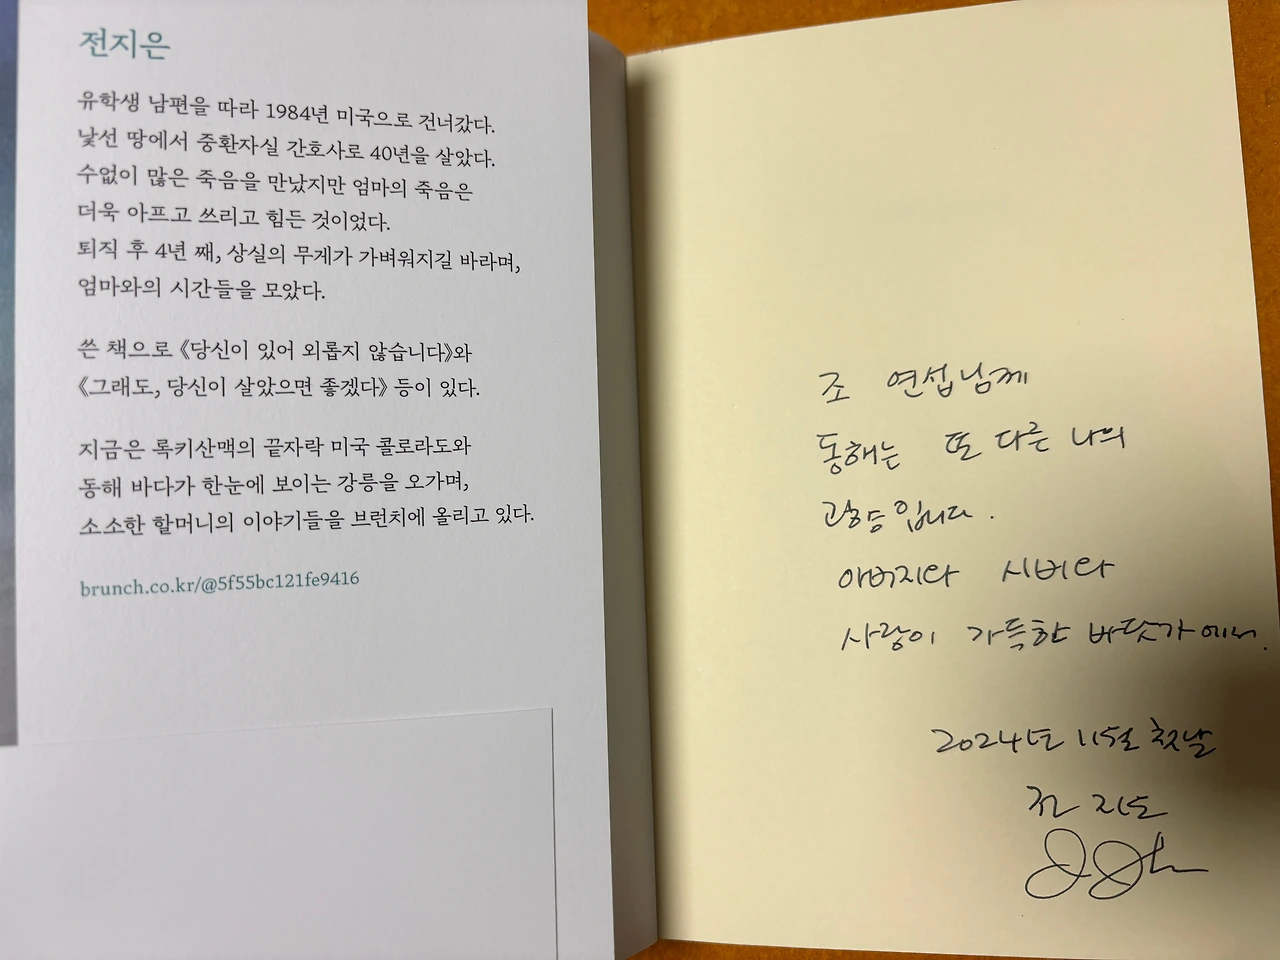 전지은
유학생 남편을 따라 1984년 미국으로 건너갔다.
낯선 땅에서 중환자실 간호사로 40년을 살았다.
수없이 많은 죽음을 만났지만 엄마의 죽음은
더욱 아프고 쓰리고 힘든 것이었다.
퇴직 후 4년 째, 상실의 무게가 가벼워지길 바라며,
엄마와의 시간들을 모았다.
쓴 책으로 《당신이 있어 외롭지 않습니다》와
《그래도, 당신이 살았으면 좋겠다》 등이 있다.
지금은 록키산맥의 끝자락 미국 콜로라도와
동해 바다가 한눈에 보이는 강릉을 오가며,
소소한 할머니의 이야기들을 브런치에 올리고 있다.
brunch.co.kr/@5f55bc121fe9416
조 연섭님께
동해는 또 다른 나의
고향입니다.
아버지랑 시버랑
사랑이 가득한 바닷가에서.
2024년 11월 첫날
전 지은